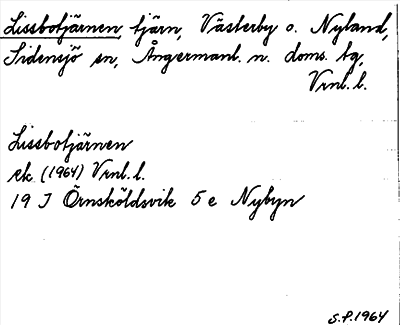 Lissbotjärnen, tjärn, Västerby o. Nyland,
Sidensjö sn, Ångermanl. n. doms. tg,
Vrnl. l.
Lissbotjärnen
ek (1964) Vrnl. l.
19 J Örnsköldsvik 5 e Nybyn
S.P. 1964